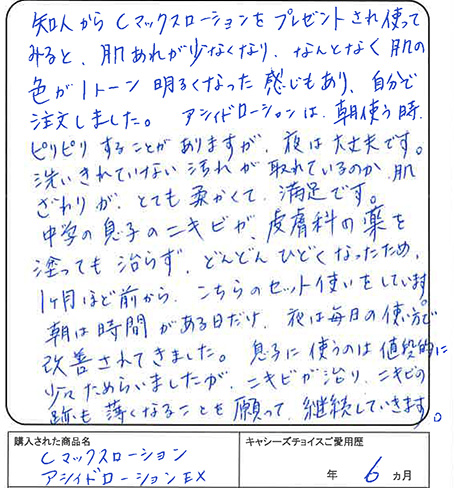 知人からCマックスローションをプレゼントされ使って
みると、肌あれが少なくなり、なんとなく肌の
色が1トーン明るくなった感じもあり、自分で
注文しました。アシィドローションは、朝使う時、
ピリピリすることがありますが、夜は大丈夫です。
洗いきれていない汚れが取れているのか、肌
ざわりが、とても柔かくて、満足です。
中学の息子のニキビが、皮膚科の薬を
塗っても治らず、どんどんひどくなったため、
1ヶ月ほど前から、こちらのセット使いをしています。
朝は時間がある日だけ、夜は毎日の使い方で
改善されてきました。息子に使うのは値段的に
少々ためらいましたが、ニキビが治り、ニキビの
跡も薄くなることを願って、継続していきます。
購入された商品名
Cマックスローション
アシィドローションEX
キャシーズチョイスご愛用歴
年 6 ヵ月